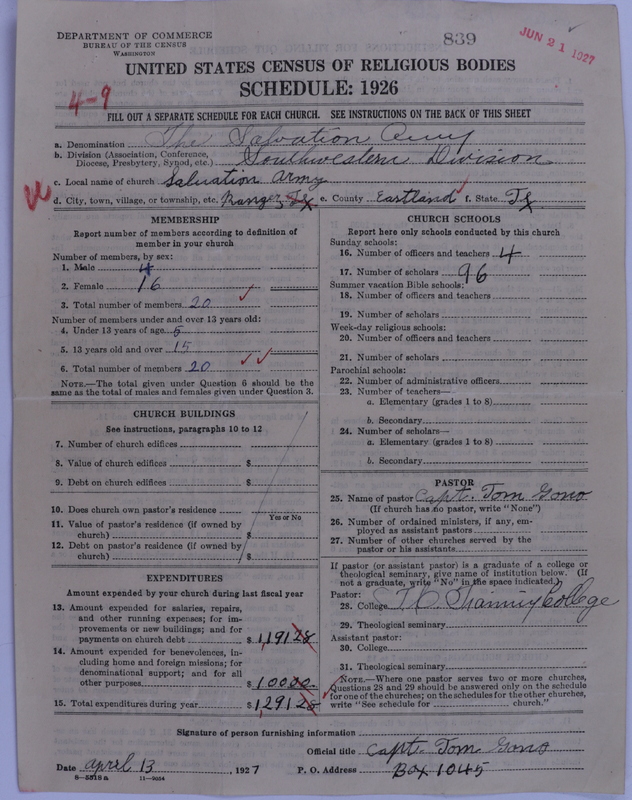 DEPARTMENT OF COMMERCE
BUREAU OF THE CENSUS
WASHINGTON
839
JUN 21 1927
UNITED STATES CENSUS OF RELIGIOUS BODIES
SCHEDULE: 1926
4-9
FILL OUT A SEPARATE SCHEDULE FOR EACH CHURCH. SEE INSTRUCTIONS ON THE BACK OF THIS SHEET
a. Denomination The Salvation Army
b. Division (Association, Conference, Diocese, Presbytery, Synod, etc.) Southwestern Division
c. Local name of church Salvation Army
d. City, town, village, or township, etc. Ranger, Tx e. County Eastland f. State Tx
MEMBERSHIP
Report number of members according to definition of member in your church
Number of members, by sex:
1. Male 4
2. Female 16
3. Total number of members 20
Number of members under and over 13 years old:
4. Under 13 years of age 5
5. 13 years old and over 15
6. Total number of members 20
NOTE.—The total given under Question 6 should be the same as the total of males and females given under Question 3.
CHURCH BUILDINGS
See instructions, paragraphs 10 to 12
7. Number of church edifices
8. Value of church edifices $
9. Debt on church edifices $
10. Does church own pastor's residence
Yes or No
11. Value of pastor's residence (if owned by church) $
12. Debt on pastor's residence (if owned by church) $
EXPENDITURES
Amount expended by your church during last fiscal year
13. Amount expended for salaries, repairs, and other running expenses; for improvements or new buildings; and for payments on church debt $ 1,191 28
14. Amount expended for benevolences, including home and foreign missions; for denominational support; and for all other purposes $ 100 00
15. Total expenditures during year $ 1,291 28
CHURCH SCHOOLS
Report here only schools conducted by this church
Sunday schools:
16. Number of officers and teachers 4
17. Number of scholars 96
Summer vacation Bible schools:
18. Number of officers and teachers
19. Number of scholars
Week-day religious schools:
20. Number of officers and teachers
21. Number of scholars
Parochial schools:
22. Number of administrative officers
23. Number of teachers—
a. Elementary (grades 1 to 8)
b. Secondary
24. Number of scholars—
a. Elementary (grades 1 to 8)
b. Secondary
PASTOR
25. Name of pastor Capt. Tom Gono
(If church has no pastor, write "None")
26. Number of ordained ministers, if any, employed as assistant pastors
27. Number of other churches served by the pastor or his assistants
If pastor (or assistant pastor) is a graduate of a college or theological seminary, give name of institution below. (If not a graduate, write "No" in the space indicated.)
Pastor:
28. College Training College
29. Theological seminary
Assistant pastor:
30. College
31. Theological seminary
NOTE.—Where one pastor serves two or more churches, Questions 28 and 29 should be answered only on the schedule for one of the churches; on the schedules for the other churches, write "See schedule for church."
Signature of person furnishing information
Official title Capt. Tom Gono
Date April 13, 1927 P. O. Address Box 1045
8—5518 a 11—9054